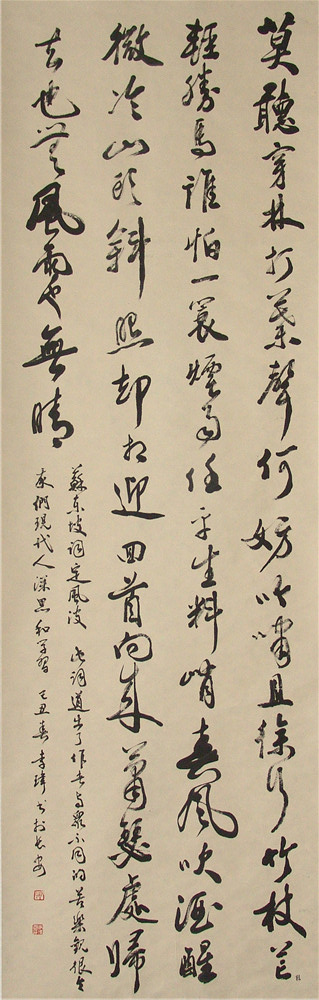 莫聽穿林打葉聲何妨吟嘯且徐行竹杖芒鞋
輕勝馬誰怕一蓑煙雨任平生料峭春風吹酒醒
微冷山頭斜照却相迎回首向來蕭瑟處歸
去也無風雨也無晴
蘇東坡詞定風波 此詞道出了作者與衆不同的苦樂觀很令
我們現代人深思和學習 己丑春 瑋書於長安